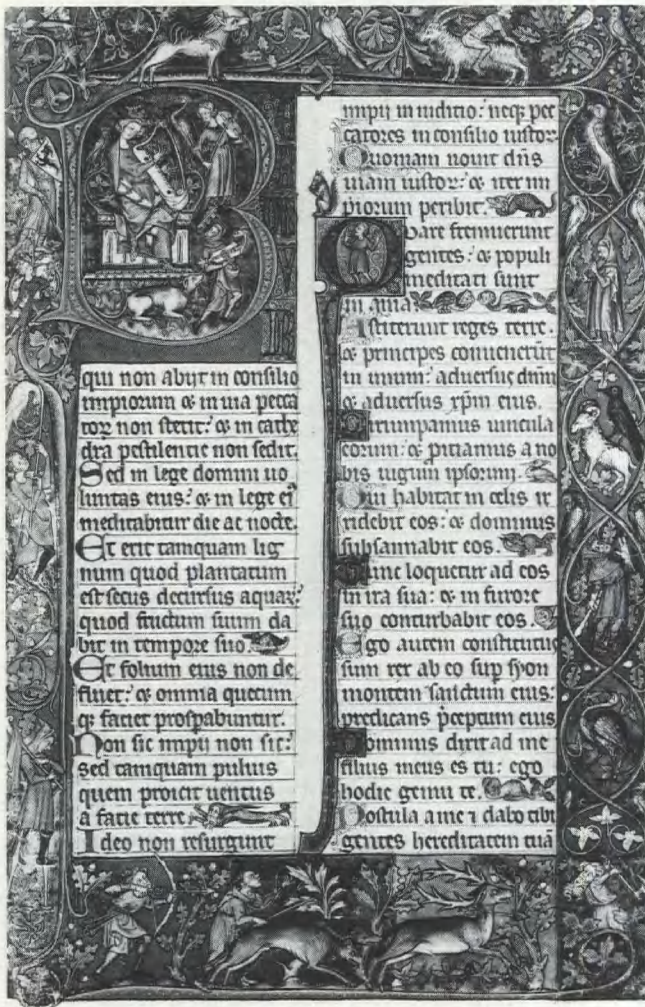 B
qui non abyt in consilio
impiorum & in uia pecca
tor non stetit: & in cathe
dra pestilentie non sedit.
Sed in lege domini uo
luntas eius: & in lege ei
meditabitur die ac nocte.
Et erit tamquam lig
num quod plantatum
est secus decursus aquar:
quod fructum suum da
bit in tempore suo.
Et folium eius non de
fluet: & omnia quecum
q faciet prospabuntur.
Non sic impii non sic:
sed tamquam puluis
quem proicit uentus
a facie terre
Ideo non resurgunt
impij in iuditio: neq pec
catores in consilio iustor.
Quoniam nouit dns
uiam iustor: & iter im
piorum peribit.
Quare fremuerunt
gentes: & populi
meditati sunt
in ania
Astiterunt reges terre.
& principes conuenerut
in unum: aduersus dnm
& aduersus xpm eius.
Dirumpamus uincula
eorum: & piciamus a no
bis iugum ipsorum.
Qui habitat in celis ir
ridebit eos: & dominus
subsannabit eos.
Tunc loquetur ad eos
in ira sua: & in furore
suo conturbabit eos.
Ego autem constitutus
sum rex ab eo sup syon
montem sanctum eius:
predicans pceptum eius
Dominus dixit ad me
filius meus es tu: ego
hodie genui te.
Postula a me ⁊ dabo tibi
gentes hereditatem tuā